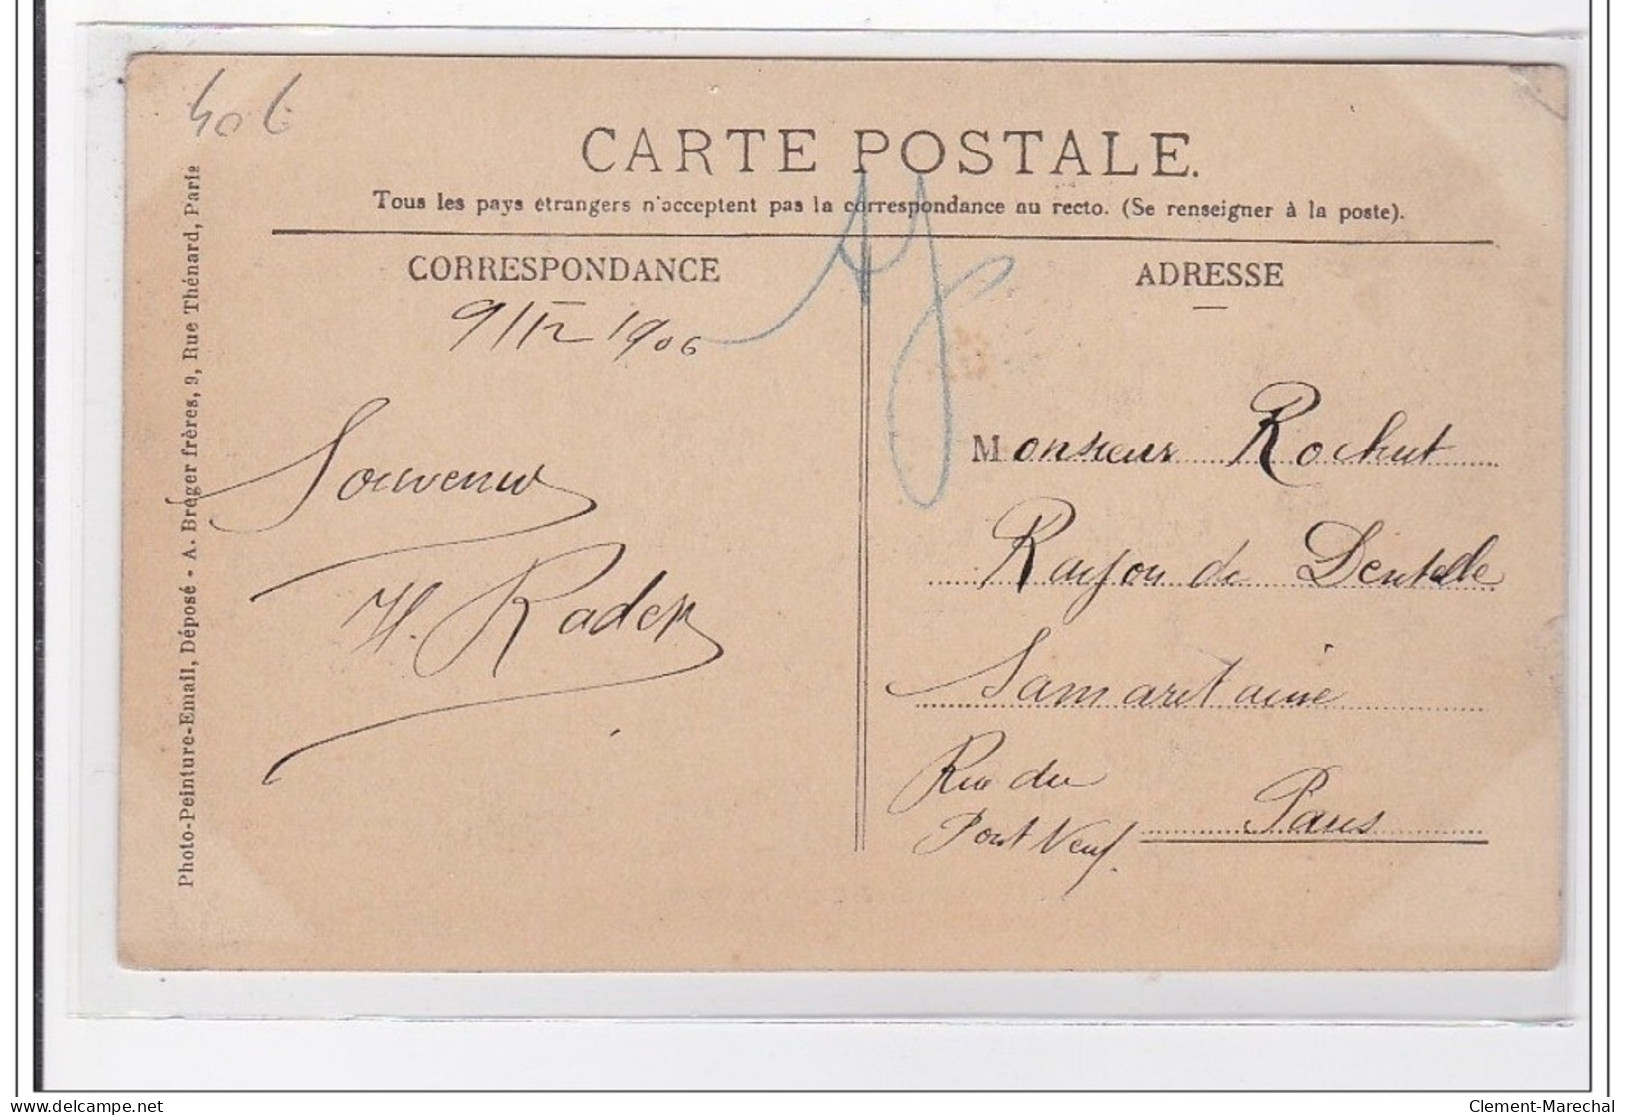 40 €
CARTE POSTALE.
Tous les pays étrangers n'acceptent pas la correspondance au recto. (Se renseigner à la poste).
CORRESPONDANCE
9/12 1906
Souvenir
H. Rader
ADRESSE
Monsieur Rochut
Rayon de Dentelle
Samaritaine
Rue du
Pont Neuf
Paris
Photo-Peinture-Email, Déposé - A. Breger frères, 9, Rue Thénard, Paris
delcampe.net
Clement-Marechal